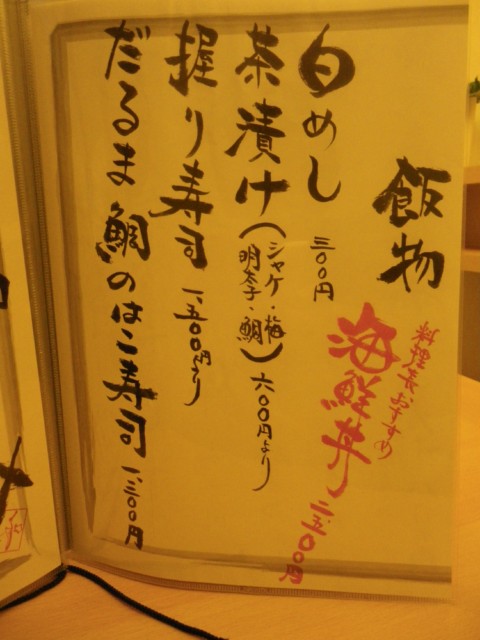 飯物
料理長おすすめ
海鮮丼 二、五〇〇円
白めし 三〇〇円
茶漬け(シャケ・梅
明太子・鯛)六〇〇円より
握り寿司 一、五〇〇円より
だるま鯛のはこ寿司 一、三〇〇円